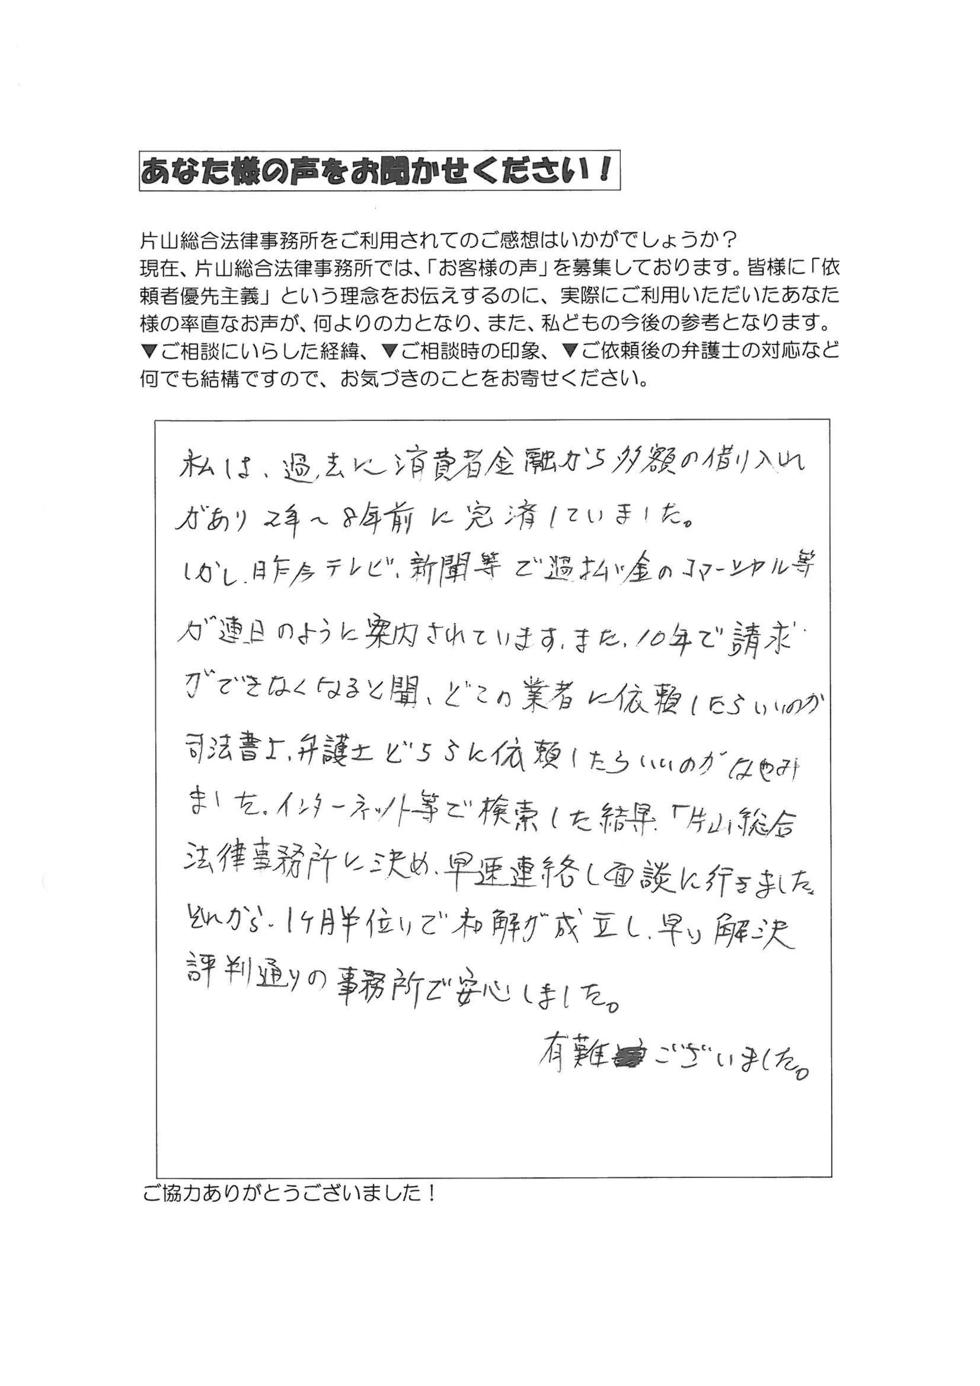 あなた様の声をお聞かせください！
片山総合法律事務所をご利用されてのご感想はいかがでしょうか？
現在、片山総合法律事務所では、「お客様の声」を募集しております。皆様に「依
頼者優先主義」という理念をお伝えするのに、実際にご利用いただいたあなた
様の率直なお声が、何よりの力となり、また、私どもの今後の参考となります。
▼ご相談にいらした経緯、▼ご相談時の印象、▼ご依頼後の弁護士の対応など
何でも結構ですので、お気づきのことをお寄せください。
私は、過去に消費者金融から多額の借り入れ
があり2年～8年前に完済していました。
しかし、昨今テレビ、新聞等で過払い金のコマーシャル等
が連日のように案内されています、また、10年で請求
ができなくなると聞、どこの業者に依頼したらいいのか
司法書士、弁護士どちらに依頼したらいいのかなやみ
ました。インターネット等で検索した結果、「片山総合
法律事務所に決め、早速連絡し面談に行きました。
それから、1ヶ月半位いで和解が成立し、早い解決
評判通りの事務所で安心しました。
有難ございました。
ご協力ありがとうございました！